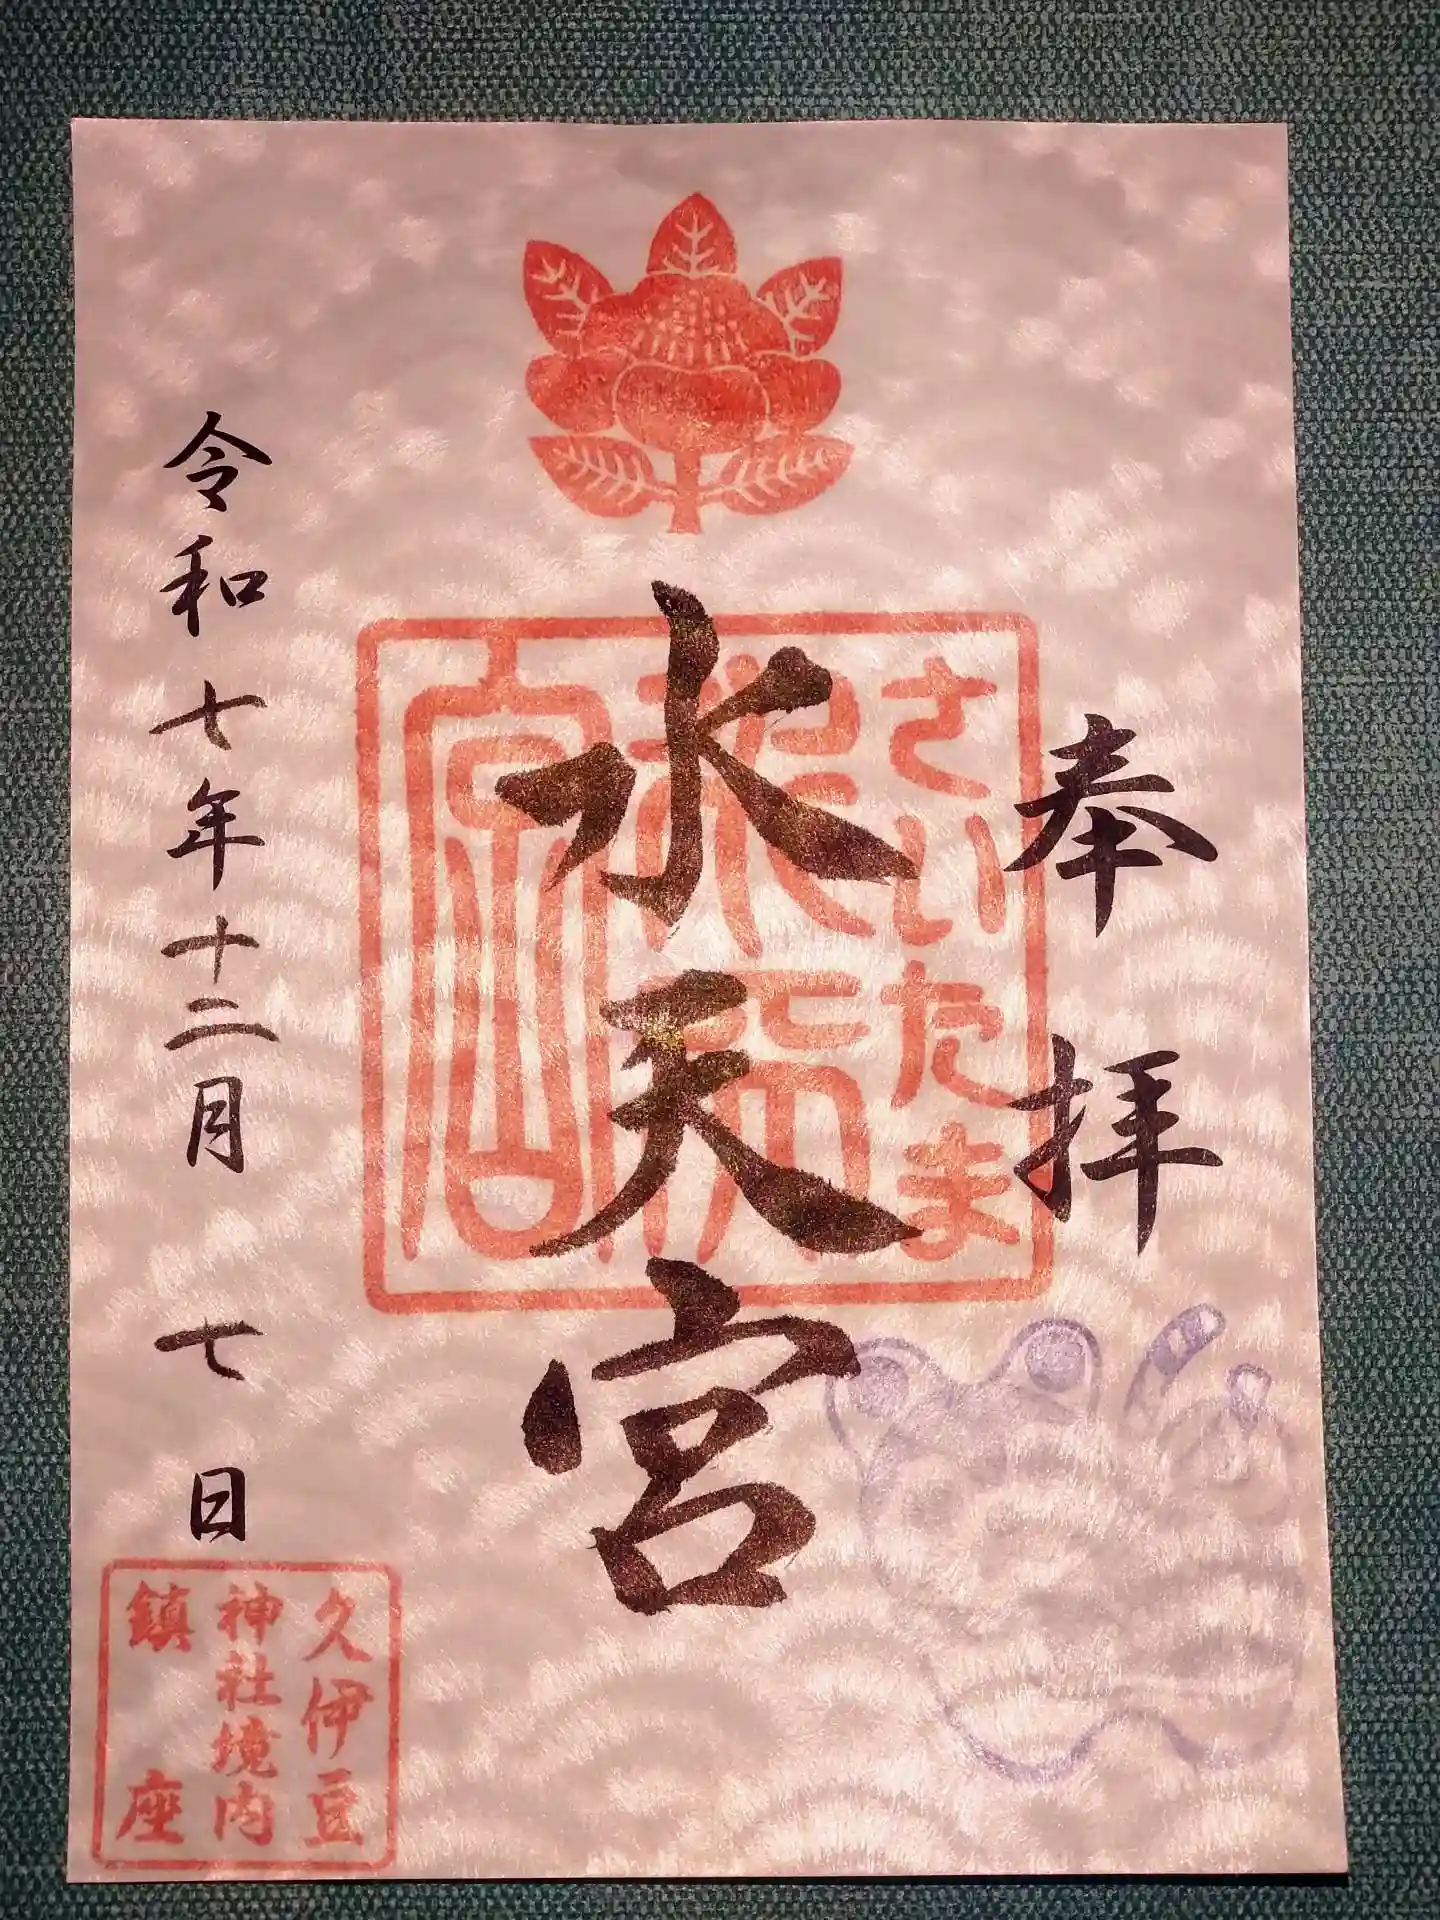 奉拝
さいたま
水天宮
令和七年十二月七日
久伊豆
神社境内
鎮座